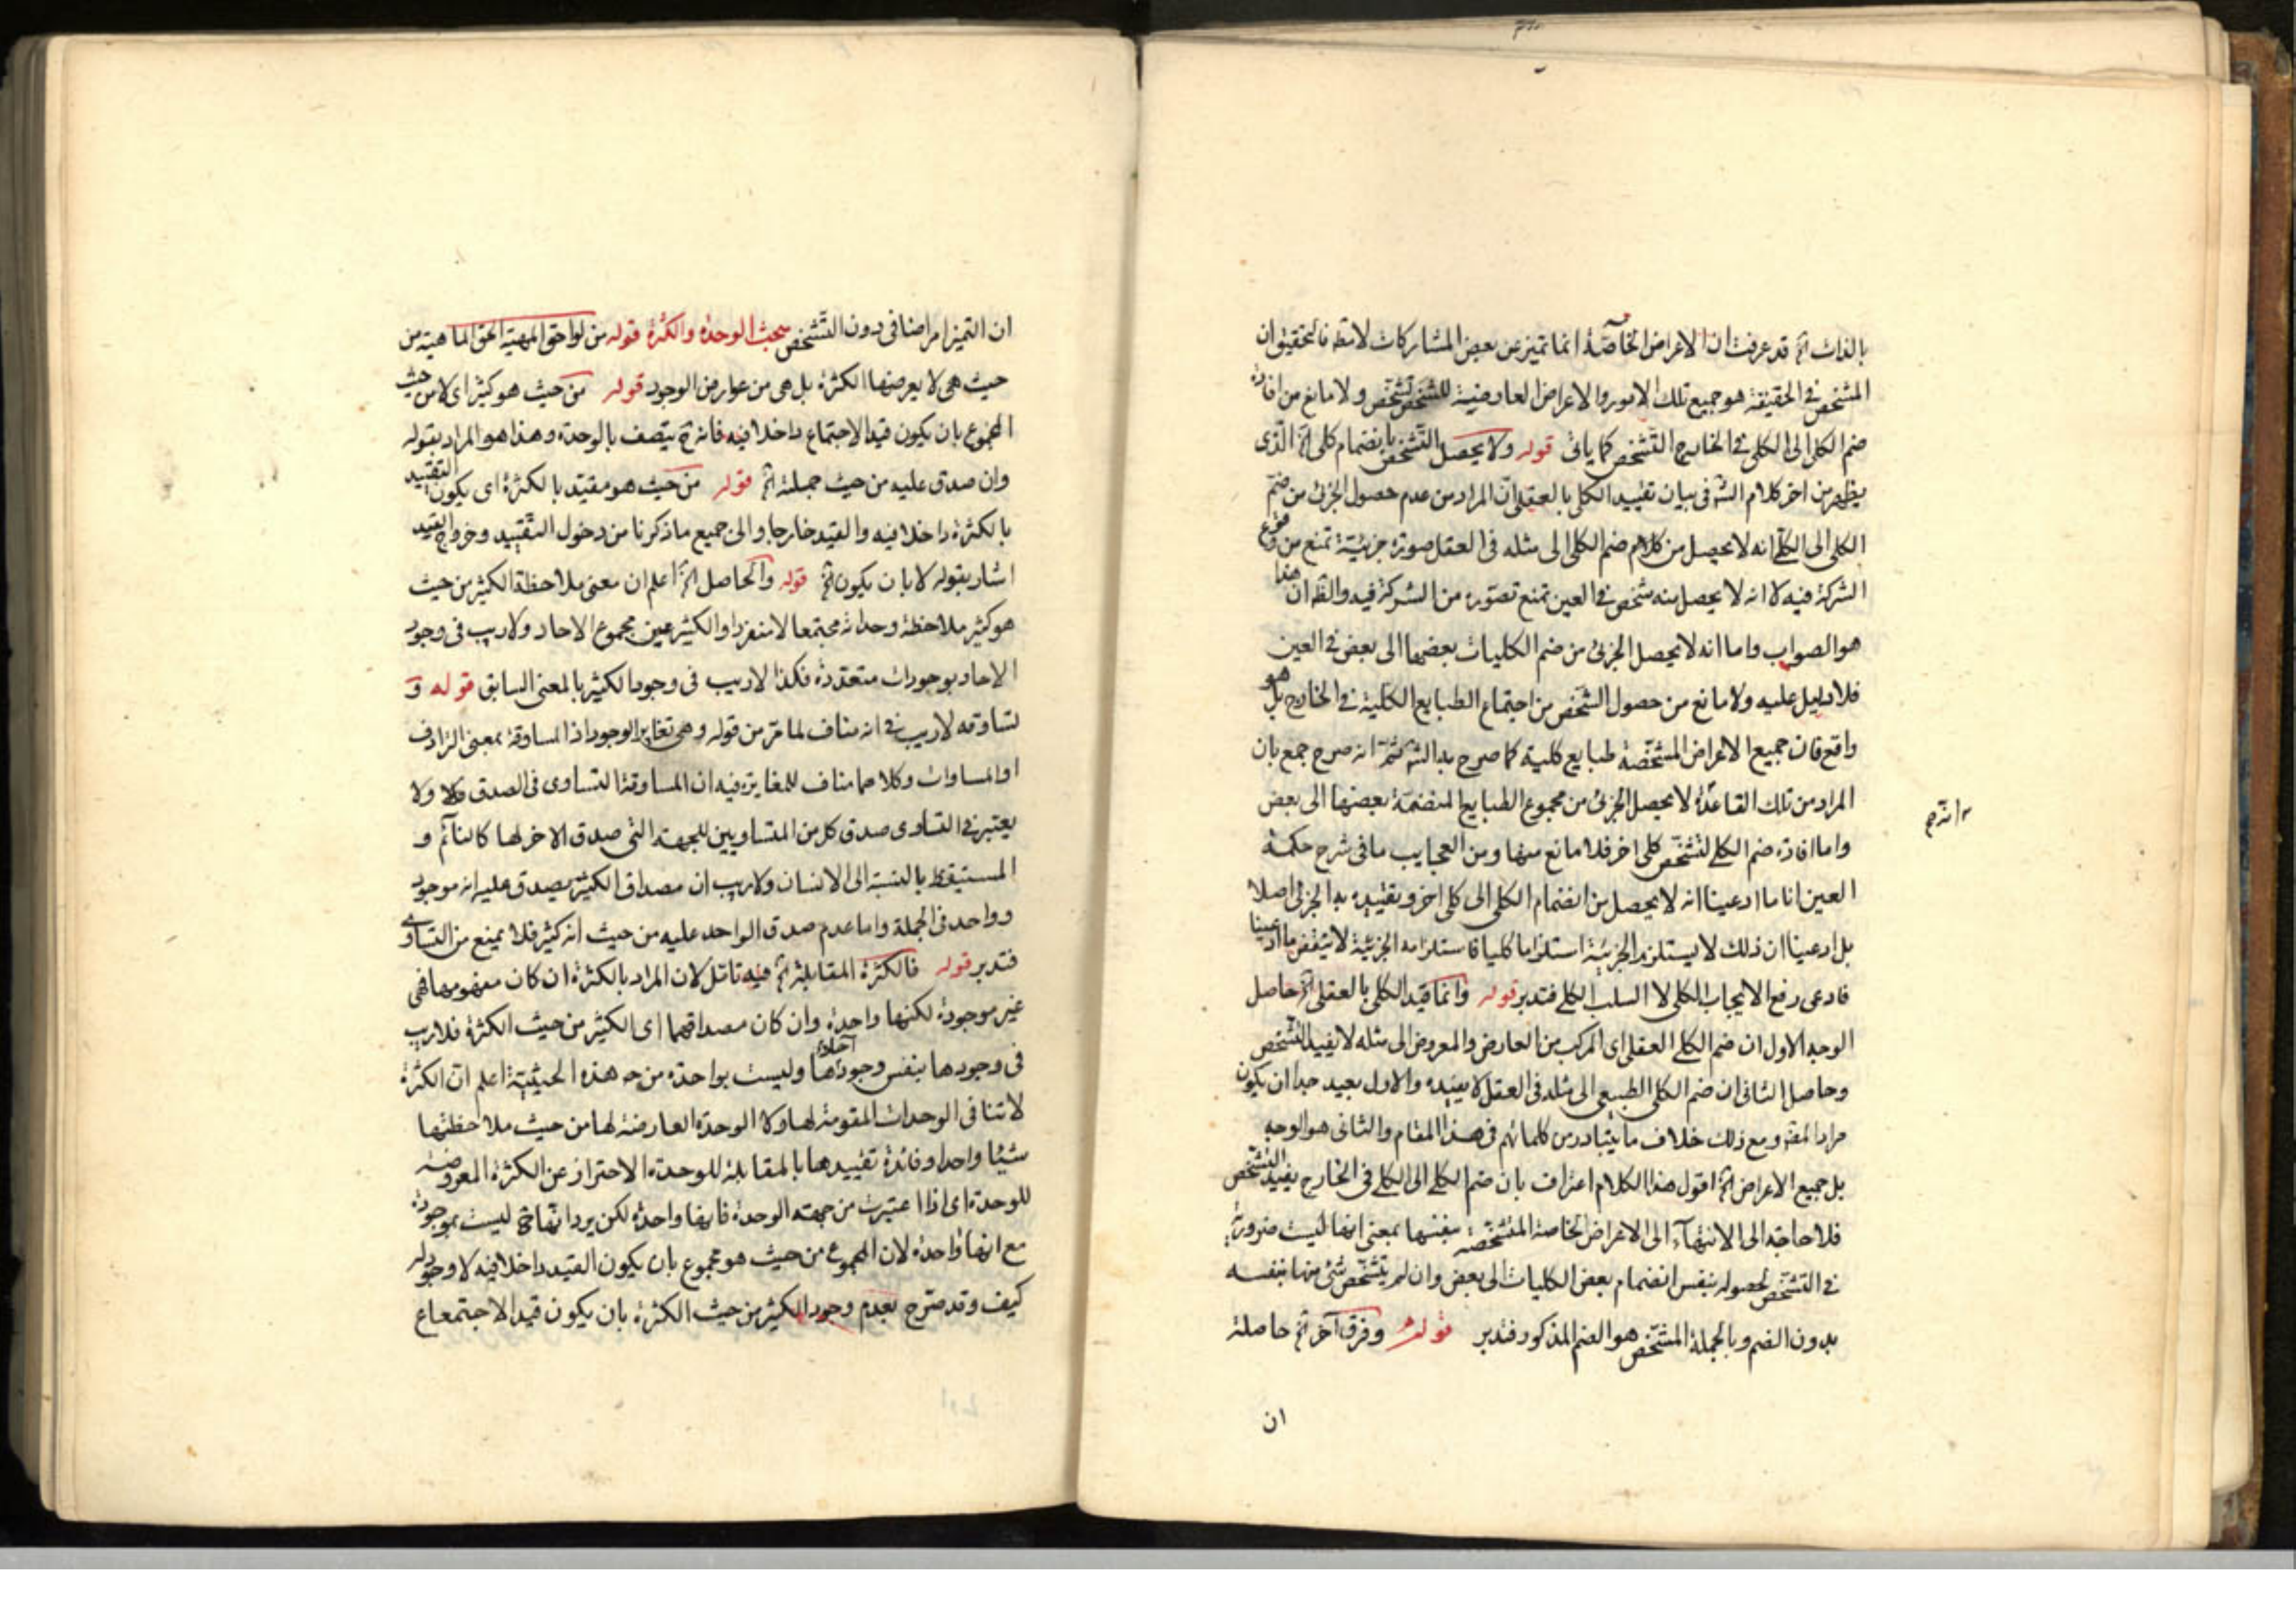 بالذات الخ قد عرفت ان الاعراض الخاصة انما تميز عن بعض المشاركات لا مطلقا فالتحقيق ان
المشخص في الحقيقة هو جميع تلك الامور والاعراض العارضية للشخص ولا مانع من افادة
ضم الكلى الى الكلى في الخارج التشخص كما ياتى قوله ولا يحصل التشخص بانضمام كلى الخ الذى
يظهر من اخر كلام الش فى بيان تقييد الكلى بالعقلى ان المراد من عدم حصول الجزئى من ضم
الكلى الى الكلى انه لا يحصل من ضم الكلى الى مثله فى العقل صورة جزئية تمنع من وقوع
الشركة فيه لا انه لا يحصل منه شخص في العين تمنع تصوره من الشركة فيه والظ ان هذا
هو الصواب واما انه لا يحصل الجزئى من ضم الكليات بعضها الى بعض في العين
فلا دليل عليه ولا مانع من حصول الشخص من اجتماع الطبايع الكلية في الخارج بل هو
واقع فان جميع الاعراض المشخصة طبايع كلية كما صرح به الش ثم انه صرح جمع بان
المراد من تلك القاعدة لا يحصل الجزئى من مجموع الطبايع المنضمة بعضها الى بعض
واما افادة ضم الكلى لتشخص كلى اخر فلا مانع منها ومن العجايب ما فى شرح حكمة
العين انا ما ادعينا انه لا يحصل من انضمام الكلى الى كلى اخر وتقييده به الجزئى اصلا
بل ادعينا ان ذلك لا يستلزم الجزئية استلزاما كليا فاستلزامه الجزئية لا ينقض ما ادعينا
فادعى رفع الايجاب الكلى لا السلب الكلى فتدبر قوله وانما قيد الكلى بالعقلى الخ حاصل
الوجه الاول ان ضم الكلى العقلى اى المركب من العارض والمعروض الى مثله لا يفيد التشخص
وحاصل الثانى ان ضم الكلى الطبيعى الى مثله فى العقل لا يفيده والاول بعيد جدا ان يكون
مراد المصنف ومع ذلك خلاف ما يتبادر من كلماتهم فى هذا المقام والثانى هو الوجه
بل جميع الاعراض الخ اقول هذا الكلام اعتراف بان ضم الكلى الى الكلى فى الخارج يفيد التشخص
فلا حاجة الى الانتهاء الى الاعراض الخاصة المتشخصة بنفسها بمعنى انها ليست ضرورية
في التشخص لحصوله بنفس انضمام بعض الكليات الى بعض وان لم يتشخص شئ منها بنفسه
بدون الضم وبالجملة المشخص هو الضم المذكور فتدبر قوله وفرق آخر الخ حاصله
ان
ان التميز امر اضافى دون التشخص بحث الوحدة والكثرة قوله من لواحق المهية الحق الماهية من
حيث هى لا يعرضها الكثرة بل هى من عوارض الوجود قوله من حيث هو كثير اى لا من حيث
المجموع بان يكون قيد الاجتماع داخلا فيه فانه ح يتصف بالوحدة وهذا هو المراد بقوله
وان صدق عليه من حيث جملته الخ قوله من حيث هو مقيد بالكثرة اى يكون التقييد
بالكثرة داخلا فيه والقيد خارجا والى جميع ما ذكرنا من دخول التقييد وخروج القيد
اشار بقوله لا بان يكون الخ قوله والحاصل الخ اعلم ان معنى ملاحظة الكثير من حيث
هو كثير ملاحظة وحداته مجتمعا لا منفردا والكثير عين مجموع الاحاد ولا ريب فى وجود
الاحاد بوجودات متعددة فكذا لا ريب فى وجود الكثير بالمعنى السابق قوله و
تساوقه لا ريب في انه مناف لما مر من قوله وهى تغاير الوجود اذ المساوقة بمعنى الترادف
او المساوات وكلاهما مناف للمغايرة فيه ان المساوقة التساوى فى الصدق ولا
يعتبر في التساوى صدق كل من المتساويين للجهة التى صدق الاخر لها كالنائم و
المستيقظ بالنسبة الى الانسان ولا ريب ان مصداق الكثير يصدق عليه انه موجود
وواحد فى الجملة واما عدم صدق الواحد عليه من حيث انه كثير فلا يمنع من التساوى
فتدبر قوله فالكثرة المقابلة الخ فيه تامل لان المراد بالكثرة ان كان مفهومها فهى
غير موجودة لكنها واحدة وان كان مصداقها اى الكثير من حيث الكثرة فلا ريب
فى وجودها بنفس وجود آحادها وليست بواحدة من هذه الحيثية اعلم ان الكثرة
لا تنافى الوحدات المقومة لها ولا الوحدة العارضة لها من حيث ملاحظتها
شيئا واحدا وفائدة تقييدها بالمقابلة للوحدة الاحتراز عن الكثرة المعروضة
للوحدة اى اذا اعتبرت من جهة الوحدة فانها واحدة لكن يرد انها ح ليست بموجودة
مع انها واحدة لان المجموع من حيث هو مجموع بان يكون القيد داخلا فيه لا وجود له
كيف وقد صرح بعدم وجود الكثير من حيث الكثرة بان يكون قيد الاجتماع